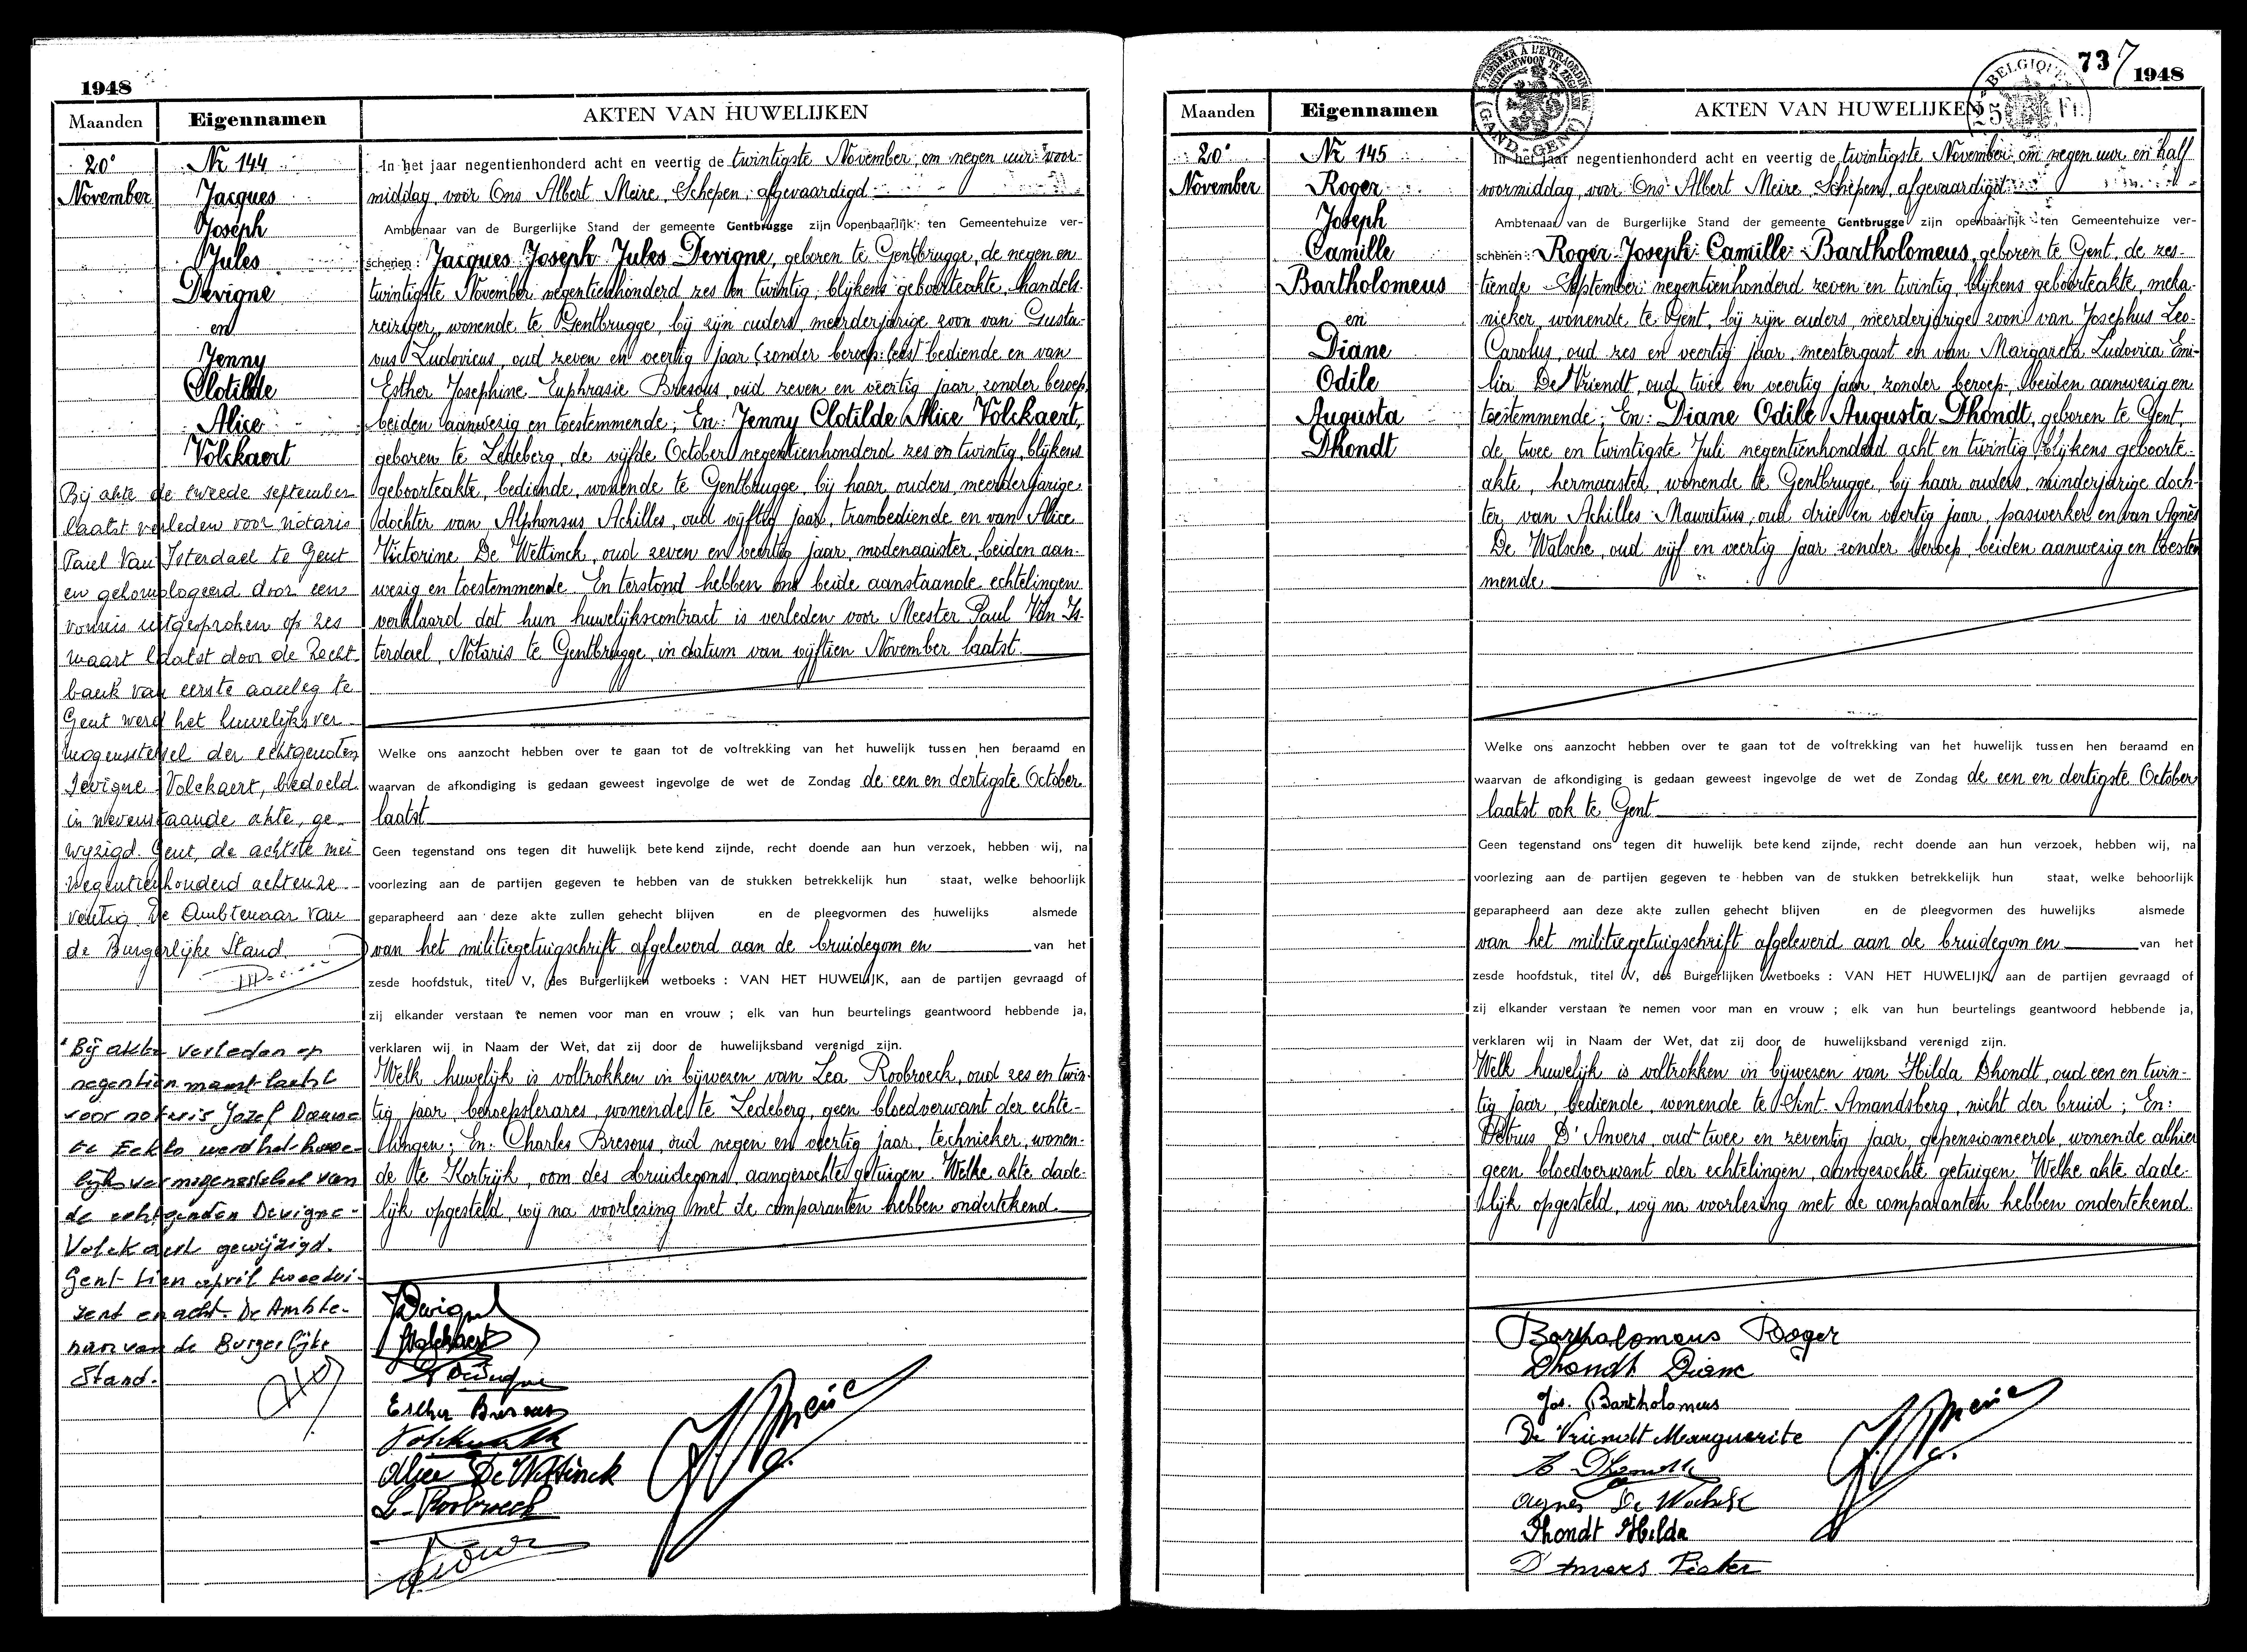 1948
Maanden Eigennamen AKTEN VAN HUWELIJKEN
20e
November
Nr 144
Jacques
Joseph
Jules
Devigne
en
Jenny
Clotilde
Alice
Volckaert
Bij akte de tweede september
laatst verleden voor notaris
Paul Van Isterdael te Gent
en gehomologeerd door een
vonnis uitgesproken op zes
maart laatst door de Recht-
bank van eerste aanleg te
Gent werd het huwelijksver-
mogensstelsel der echtgenoten
Devigne-Volckaert, bedoeld
in nevenstaande akte, ge-
wyzigd. Gent, de achtste mei
negentienhonderd achtenze-
ventig. De Ambtenaar van
de Burgerlijke Stand.
Bij akte verleden op
negentien maart laatst
voor notaris Jozef
te Eeklo werd het huwe-
lijksvermogensstelsel van
de echtgenoten Devigne-
Volckaert gewijzigd.
Gent tien april tweedui-
zend en acht. De Ambte-
naar van de Burgerlijke
Stand.
In het jaar negentienhonderd acht en veertig de twintigste November om negen uur voor-
middag, voor Ons Albert Meire, Schepen, afgevaardigd
Ambtenaar van de Burgerlijke Stand der gemeente Gentbrugge zijn openbaarlijk ten Gemeentehuize ver-
schenen: Jacques Joseph Jules Devigne, geboren te Gentbrugge, de negen en
twintigste November negentienhonderd zes en twintig, blijkens geboorteakte, handels-
reiziger, wonende te Gentbrugge, bij zijn ouders, meerderjarige zoon van Gusta-
vus Ludovicus, oud zeven en veertig jaar (zonder beroep: lees) bediende en van
Esther Josephine Euphrasie Bresous, oud zeven en veertig jaar, zonder beroep,
beiden aanwezig en toestemmende; En: Jenny Clotilde Alice Volckaert,
geboren te Ledeberg, de vijfde October negentienhonderd zes en twintig, blijkens
geboorteakte, bediende, wonende te Gentbrugge, bij haar ouders, meerderjarige
dochter van Alphonsus Achilles, oud vijftig jaar, trambediende en van Alice
Victorine De Wettinck, oud zeven en veertig jaar, modenaaister, beiden aan-
wezig en toestemmende. En terstond hebben ons beide aanstaande echtelingen
verklaard dat hun huwelijkscontract is verleden voor Meester Paul Van Is-
terdael, Notaris te Gentbrugge, in datum van vijftien November laatst.
Welke ons aanzocht hebben over te gaan tot de voltrekking van het huwelijk tussen hen beraamd en
waarvan de afkondiging is gedaan geweest ingevolge de wet de Zondag de een en dertigste October
laatst
Geen tegenstand ons tegen dit huwelijk betekend zijnde, recht doende aan hun verzoek, hebben wij, na
voorlezing aan de partijen gegeven te hebben van de stukken betrekkelijk hun staat, welke behoorlijk
geparapheerd aan deze akte zullen gehecht blijven en de pleegvormen des huwelijks alsmede
van het militiegetuigschrift afgeleverd aan de bruidegom en van het
zesde hoofdstuk, titel V, des Burgerlijken wetboeks : VAN HET HUWELIJK, aan de partijen gevraagd of
zij elkander verstaan te nemen voor man en vrouw ; elk van hun beurtelings geantwoord hebbende ja,
verklaren wij in Naam der Wet, dat zij door de huwelijksband verenigd zijn.
Welk huwelijk is voltrokken in bijwezen van Lea Roobroeck, oud zes en twin-
tig jaar beroepslerares, wonende te Ledeberg, geen bloedverwant der echte-
lingen; En: Charles Bresous, oud negen en veertig jaar, technieker, wonen-
de te Kortrijk, oom des bruidegoms, aangezochte getuigen. Welke akte dade-
lijk opgesteld, wij na voorlezing met de comparanten hebben ondertekend.
JDevigne
JVolckaert
Esther Bresous
Alice De Wettinck
L. Roobroeck
Meire
737 1948
TIMBRER À L'EXTRAORDINAIRE
BUITENGEWOON TE ZEGELEN
GAND - GENT
BELGIQUE
25 Fr.
Maanden Eigennamen AKTEN VAN HUWELIJKEN
20e
November
Nr 145
Roger
Joseph
Camille
Bartholomeus
en
Diane
Odile
Augusta
Dhondt
In het jaar negentienhonderd acht en veertig de twintigste November om negen uur en half
voormiddag, voor Ons Albert Meire, Schepen, afgevaardigd
Ambtenaar van de Burgerlijke Stand der gemeente Gentbrugge zijn openbaarlijk ten Gemeentehuize ver-
schenen: Roger Joseph Camille Bartholomeus, geboren te Gent, de zes-
tiende September negentienhonderd zeven en twintig, blijkens geboorteakte, meka-
nieker, wonende te Gent, bij zijn ouders, meerderjarige zoon van Josephus Leo-
Carolus, oud zes en veertig jaar, meestergast en van Margareta Ludovica Emi-
lia De Vriendt, oud twee en veertig jaar, zonder beroep, beiden aanwezig en
toestemmende; En: Diane Odile Augusta Dhondt, geboren te Gent,
de twee en twintigste Juli negentienhonderd acht en twintig, blijkens geboorte-
akte, hermaaster, wonende te Gentbrugge, bij haar ouders, minderjarige doch-
ter van Achilles Mauritius, oud drie en veertig jaar, paswerker en van Agnès
De Walsche, oud vijf en veertig jaar zonder beroep, beiden aanwezig en toestem-
mende
Welke ons aanzocht hebben over te gaan tot de voltrekking van het huwelijk tussen hen beraamd en
waarvan de afkondiging is gedaan geweest ingevolge de wet de Zondag de een en dertigste October
laatst ook te Gent
Geen tegenstand ons tegen dit huwelijk betekend zijnde, recht doende aan hun verzoek, hebben wij, na
voorlezing aan de partijen gegeven te hebben van de stukken betrekkelijk hun staat, welke behoorlijk
geparapheerd aan deze akte zullen gehecht blijven en de pleegvormen des huwelijks alsmede
van het militiegetuigschrift afgeleverd aan de bruidegom en van het
zesde hoofdstuk, titel V, des Burgerlijken wetboeks : VAN HET HUWELIJK, aan de partijen gevraagd of
zij elkander verstaan te nemen voor man en vrouw ; elk van hun beurtelings geantwoord hebbende ja,
verklaren wij in Naam der Wet, dat zij door de huwelijksband verenigd zijn.
Welk huwelijk is voltrokken in bijwezen van Hilda Dhondt, oud een en twin-
tig jaar, bediende, wonende te Sint-Amandsberg, nicht der bruid; En:
Petrus D'Anvers, oud twee en zeventig jaar, gepensionneerd, wonende alhier
geen bloedverwant der echtelingen, aangezochte getuigen. Welke akte dade-
lijk opgesteld, wij na voorlezing met de comparanten hebben ondertekend.
Bartholomeus Roger
Dhondt Diane
Jos. Bartholomeus
De Vriendt Marguerite
A Dhondt
Agnes De Walsche
Dhondt Hilda
D'Anvers Pieter
Meire